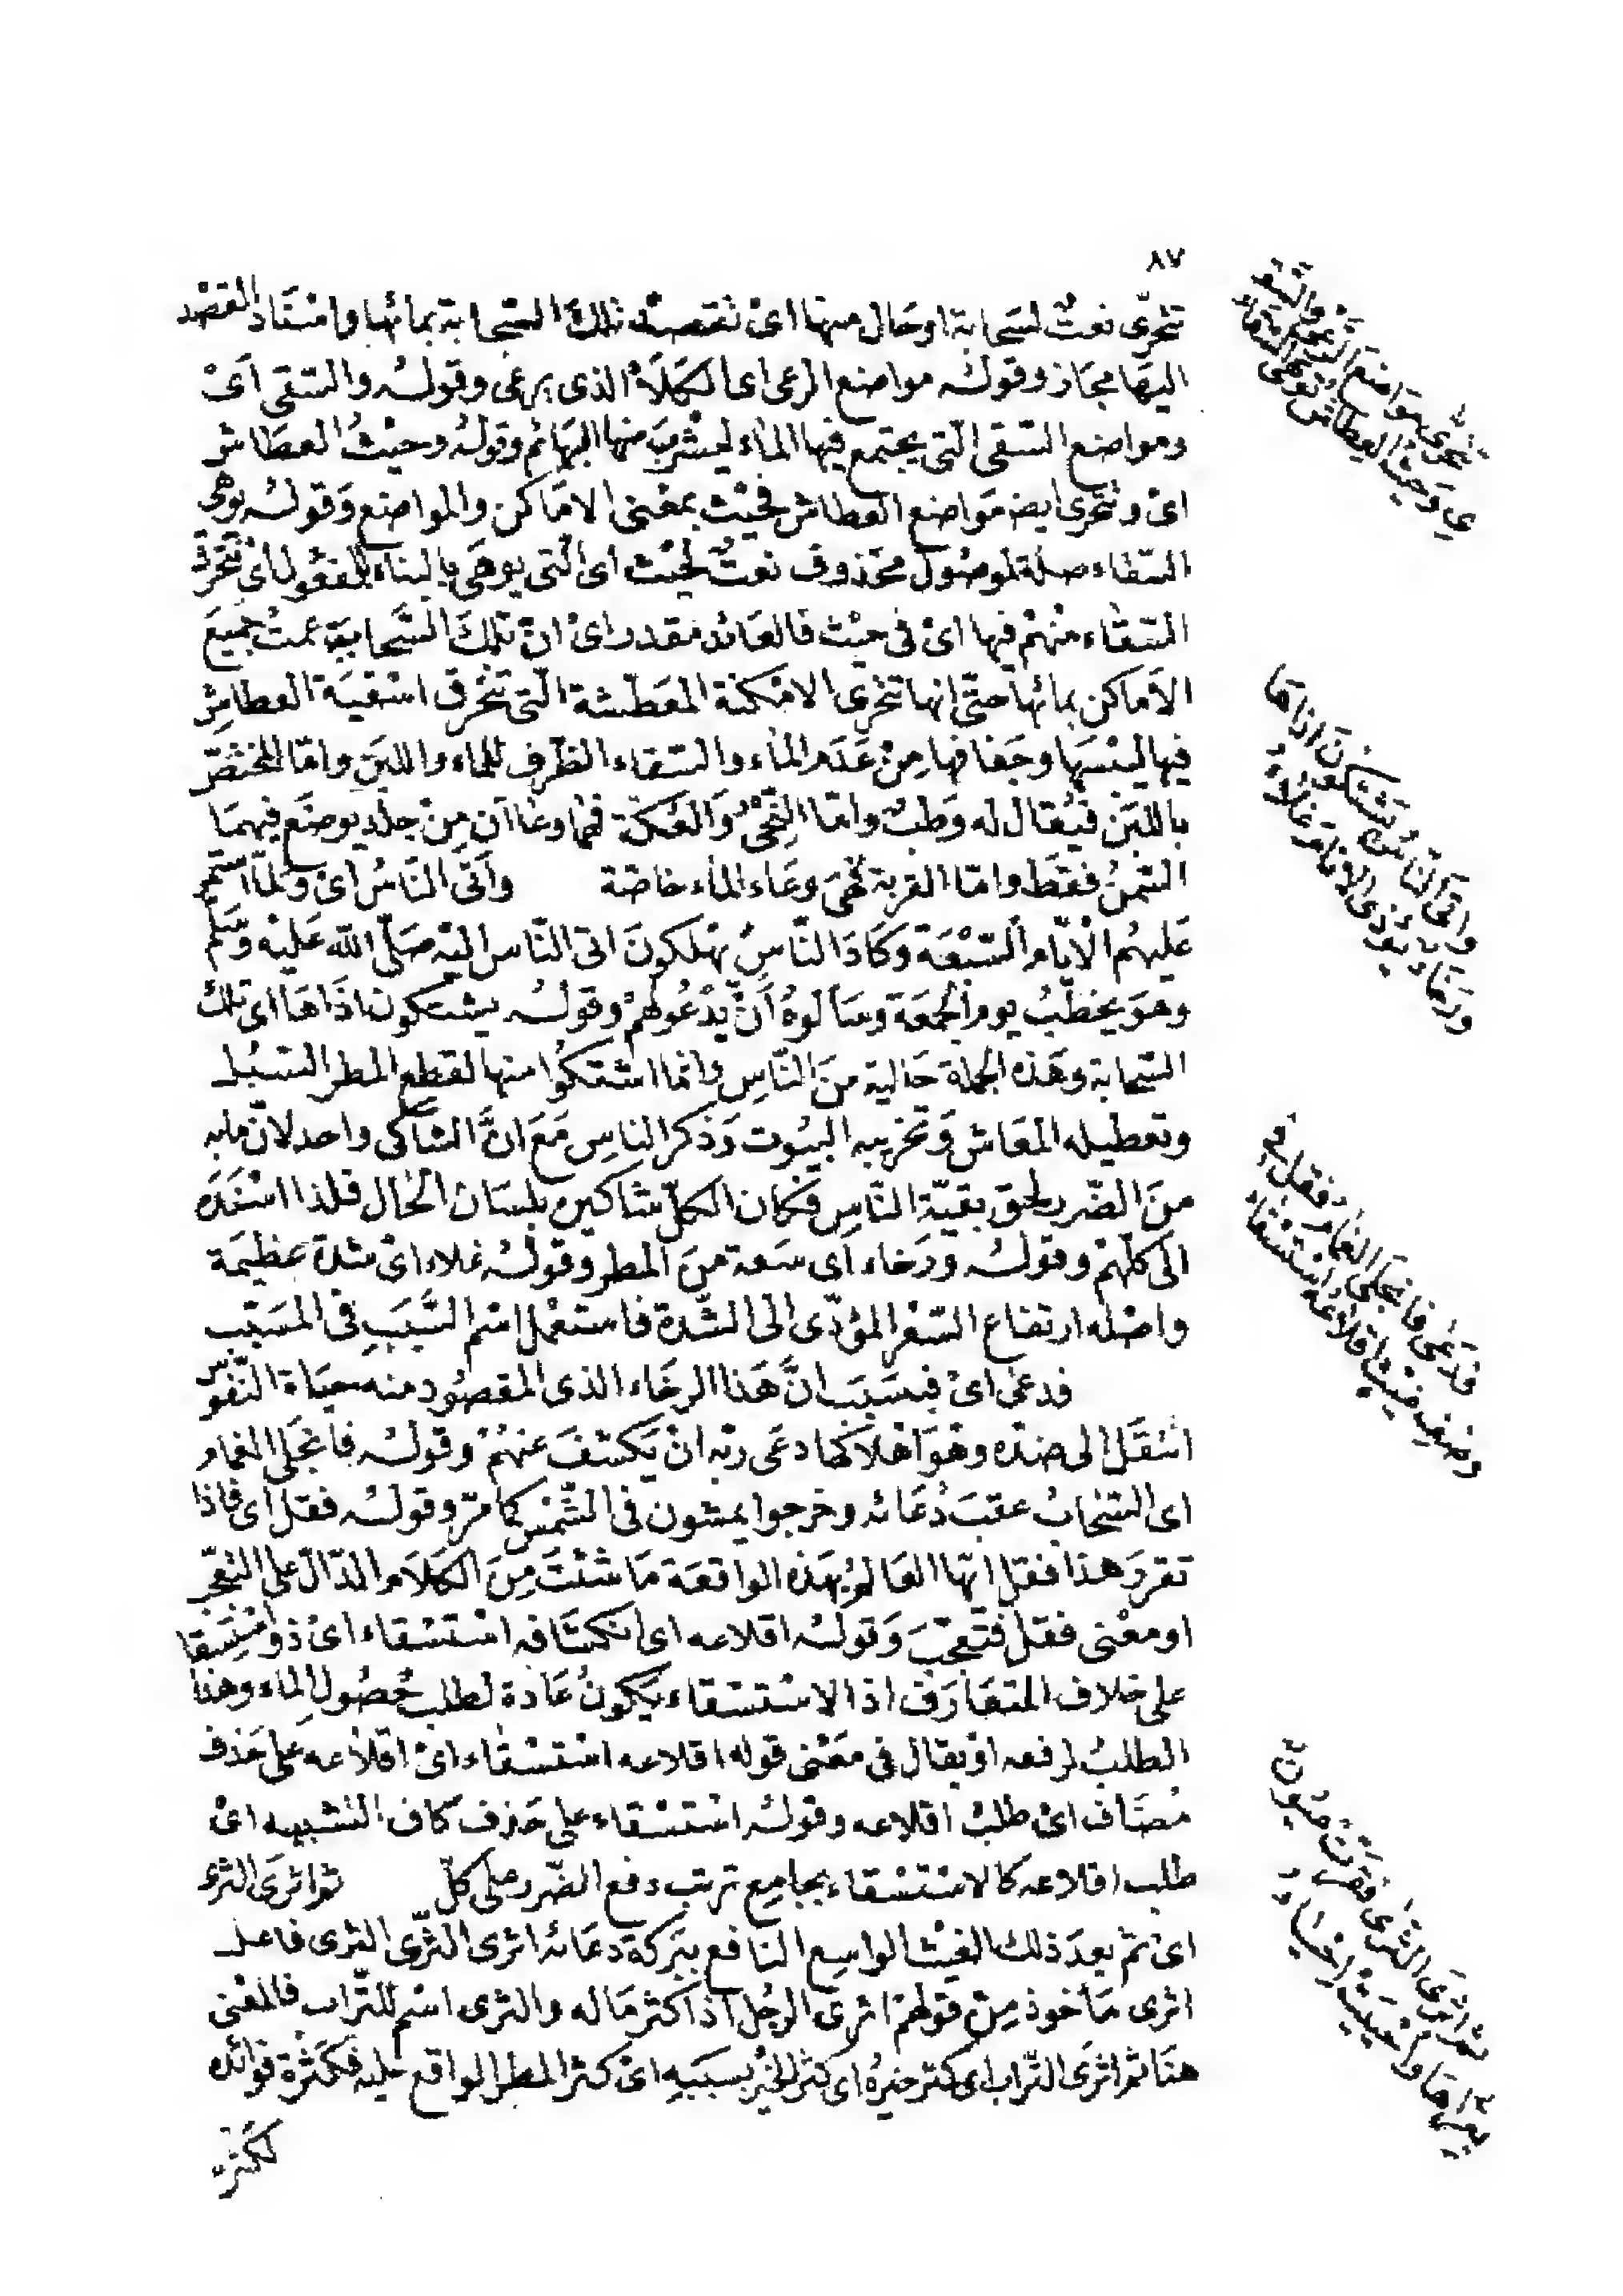 ٨٧
تتحرّى نعتٌ لسَحابة اوحَال منها اىْ تقصد تلكَ السّحابة بمائها واسْنَاد القصْد
اليهَا مجَاز وقولـُه مواضع الرعى اى الكَلَأ الذى يرعَى وقولـُه والسّقى اَىْ
ومواضع السّقى الّتى يجتمع فيها المَاء ليشْربَ منها البهَائم وقولُه وحيْثُ العطَاش
اىْ وتتحرّى ايض مَواضع العطاش فحيْث بمعْنى الامَاكن والمواضع وَقولـُه توهى
السّقاء صلة لموصُول محذوف نعتٌ لحيْث اى الّتى يوهَى بالبناء للمفعُول اىْ تتخرّق
السّقاء منْهمْ فيها اىْ فى حيْث فالعَائد مقدر اىْ انّ تلكَ السَّحابة عمتْ جميعَ
الاَماكن بمائها حتّى انها تتحرّى الامْكنة المعَطّشة الّتى تتخرق اسْقيَة العطاشِ
فيها ليبْسِهَا وجَفافها مِنْ عَدَم المَاء والسّقاء الظّرف للماء واللبَنِ وامّا المختصّ
باللبَن فيُقال له وَطبٌ وامّا النِّحْىُ وَالعُكّة فهُما وعَاآن مِنْ جلدٍ يوضَع فيهمَا
السّمنُ فقَط وامّا القربة فهىَ وعَاء الماء خاصّة واَتَى النّاسُ اىْ وَلمّا استمر
عَليهُم الْايّام السّبْعَة وكَادَ النّاسُ يهْلكونَ اتى النّاس اليْه صَلّى اللّه عَليْه وَسَلّم
وهوَ يخطُبُ يومَ الجمعَة وسَألوهُ أنْ يَدْعُولهمْ وقولـُه يشتكون اذَاهَا اى تلك
السّحابة وهَذه الجملة حَالية منَ النّاسِ وانما اشتكَوْا منها لقطع المطر السّبُلـ
وتعطيله المعَاش وَتخريبه البيُوت وَذكر الناسِ مَعَ انَّ الشّاكى واحد لانّ مابه
منَ الضّرر يلحق بقيّة النّاسِ فكان الكلّ شاكين بلسَان الحال فلذا اسْنَدَه
الَى كلّهمْ وقولـُه ورَخاء اَى سَعة منَ المطر وقولُه غلاء اىْ شدة عظيمَة
واصْله ارتفاع السّعْر المؤدّى الى الشّدة فاستعْمل اسْم السَّبَبِ فى المسَبّب
فدعَى اىْ فبسَبَب انَّ هَذا الرخَاء الذى المقصُود منه حيَاة النّفُوس
انتقَل الى ضدّه وهوَ اهْلاكها دعَى ربّه انْ يَكشفَ عنهُمْ وقولـُه فانجَلَى الغمام
اى السّحَابُ عقبَ دُعَائه وخرجوا يمشون فى الشّمْس كما مرّ وقولـُه فقل اَى فاذا
تقررَ هذا فقل ايّها العَالمُ بهَذه الواقعَة مَا شئْتَ مِنَ الكَلَام الدّالّ على التّعجّب
او معْنى فقل فتعجّبَ وَقولـُه اقلاعه اى انكشَافه اسْتسْقاء اىْ ذو اسْتِسقا
على خلاف المتعَارَف اذ الاسْتسْقاء يَكونُ عَادة لطلب حُصُول الماء وهذا
الطلبُ لرفعه اوْ يقال فى معْنى قوله اقلاعه اسْتسْقاء اىْ اقلاعه على حَذف
مُضَاف اىْ طلبُ اقلاعه وقولـُه اسْتسْقاء على حَذف كاف التّشبيه اىْ
طلب اقلاعه كالاسْتسْقاء بجامع ترتب دفع الضّرر على كلّ ثم اثرَى الثرى
اىْ ثمّ بعدَ ذلك الغيْث الواسِع النافع ببَركَة دعَائه اثرى الثّرى الثرى فاعلـ
اثرى مَأخوذ مِنْ قولهمْ اثرى الرجُل اذا كثر مَاله والثرى اسْم للتّراب فالمعْنى
هنَا ثم اثرَى التّراب اى كثر خيرُه اى كثر الخيْر بسَبَبِهِ اىْ كثر المطر الواقع عليه فكَثرة فوائده
لكَثرة
تتحرّى مواضعَ الرّعى والسّقْـ
ىِ وَحيثُ العِطاش توهَى السّقاء
واتَى النّاسُ يَشتكونَ اذاهَا
ورَخاء يؤذى الانامَ غلاء
فدَعَى فانجلَى الغمامُ فقل فى
وصْفِ غيْث اقلاعُه اسْتسْقاء
ثم اثرَى الثّرى فقرّتْ عيُونٌ
بقُراهَا وأحْييَتْ احْيَاءُ